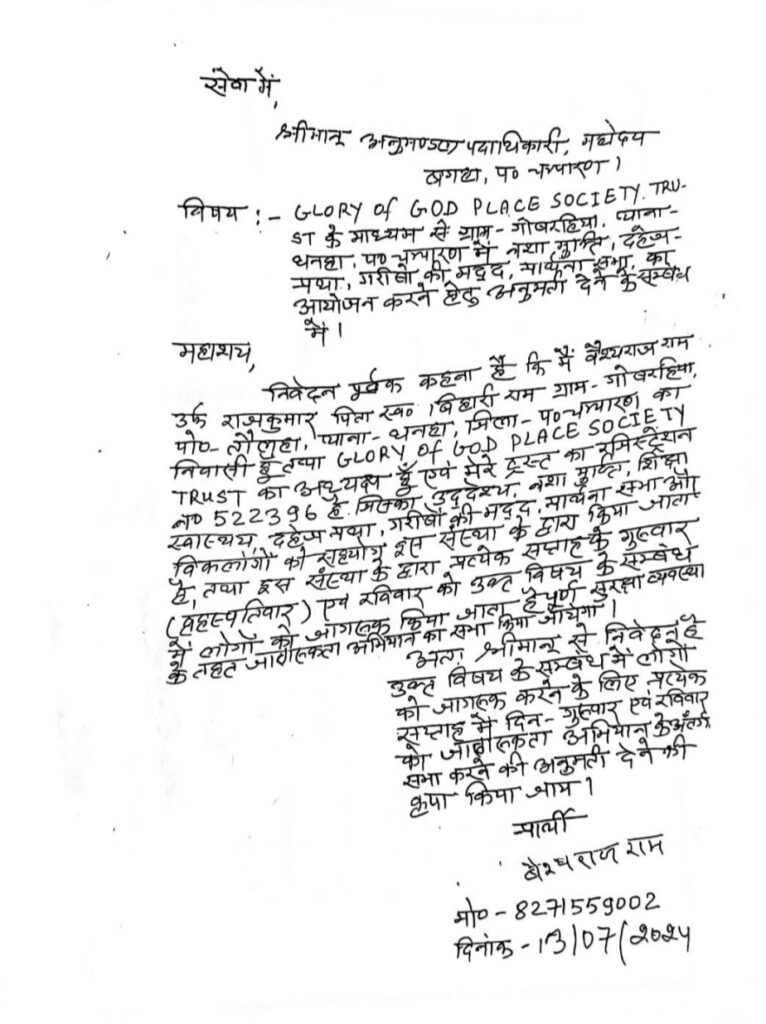 सेवा में,
श्रीमान् अनुमण्डल पदाधिकारी, महोदय
बगहा, प० चम्पारण।
विषय :- GLORY of GOD PLACE SOCIETY TRU-
ST के माध्यम से ग्राम- गोबरहिया, थाना-
धनहा, प० चम्पारण में नशा मुक्ति, दहेज-
प्रथा, गरीबों की मद्दद, प्रार्थना सभा, का
आयोजन करने हेतु अनुमती देने के सम्बंध
में।
महाशय,
निवेदन पूर्वक कहना है कि मैं वैश्यराज राम
उर्फ राजकुमार पिता स्व० बिहारी राम ग्राम- गोबरहिया,
पो०- तौलाहा, थाना- धनहा, जिला- प० चम्पारण का
निवासी हूँ तथा GLORY of GOD PLACE SOCIETY
TRUST का अध्यक्ष हूँ एवं मेरे ट्रस्ट का रजिस्ट्रेशन
न० 522396 है जिसका उद्देश्य, नशा मुक्ति, शिक्षा
स्वास्थय, दहेज प्रथा, गरीबों की मद्दद, प्रार्थना सभा और
विकलोंगों को सहयोग इस संस्था के द्वारा किया जाता
है, तथा इस संस्था के द्वारा प्रत्येक सप्ताह के गुरुवार
(बृहस्पतिवार) एवं रविवार को उक्त विषय के सम्बंध
में लोगों को जागरूक किया जाता है पूर्ण सुरक्षा व्यवस्था
के तहत जागरूकता अभियान का सभा किया जायेगा।
अतः श्रीमान् से निवेदन है
उक्त विषय के सम्बंध में लोगों
को जागरूक करने के लिए प्रत्येक
सप्ताह में दिन- गुरुवार एवं रविवार
को जागरूकता अभियान के अंतर्गत
सभा करने की अनुमती देने की
कृपा किया जाय।
प्रार्थी
बैश्य राज राम
मो०- 8271559002
दिनांक - 13/07/2024